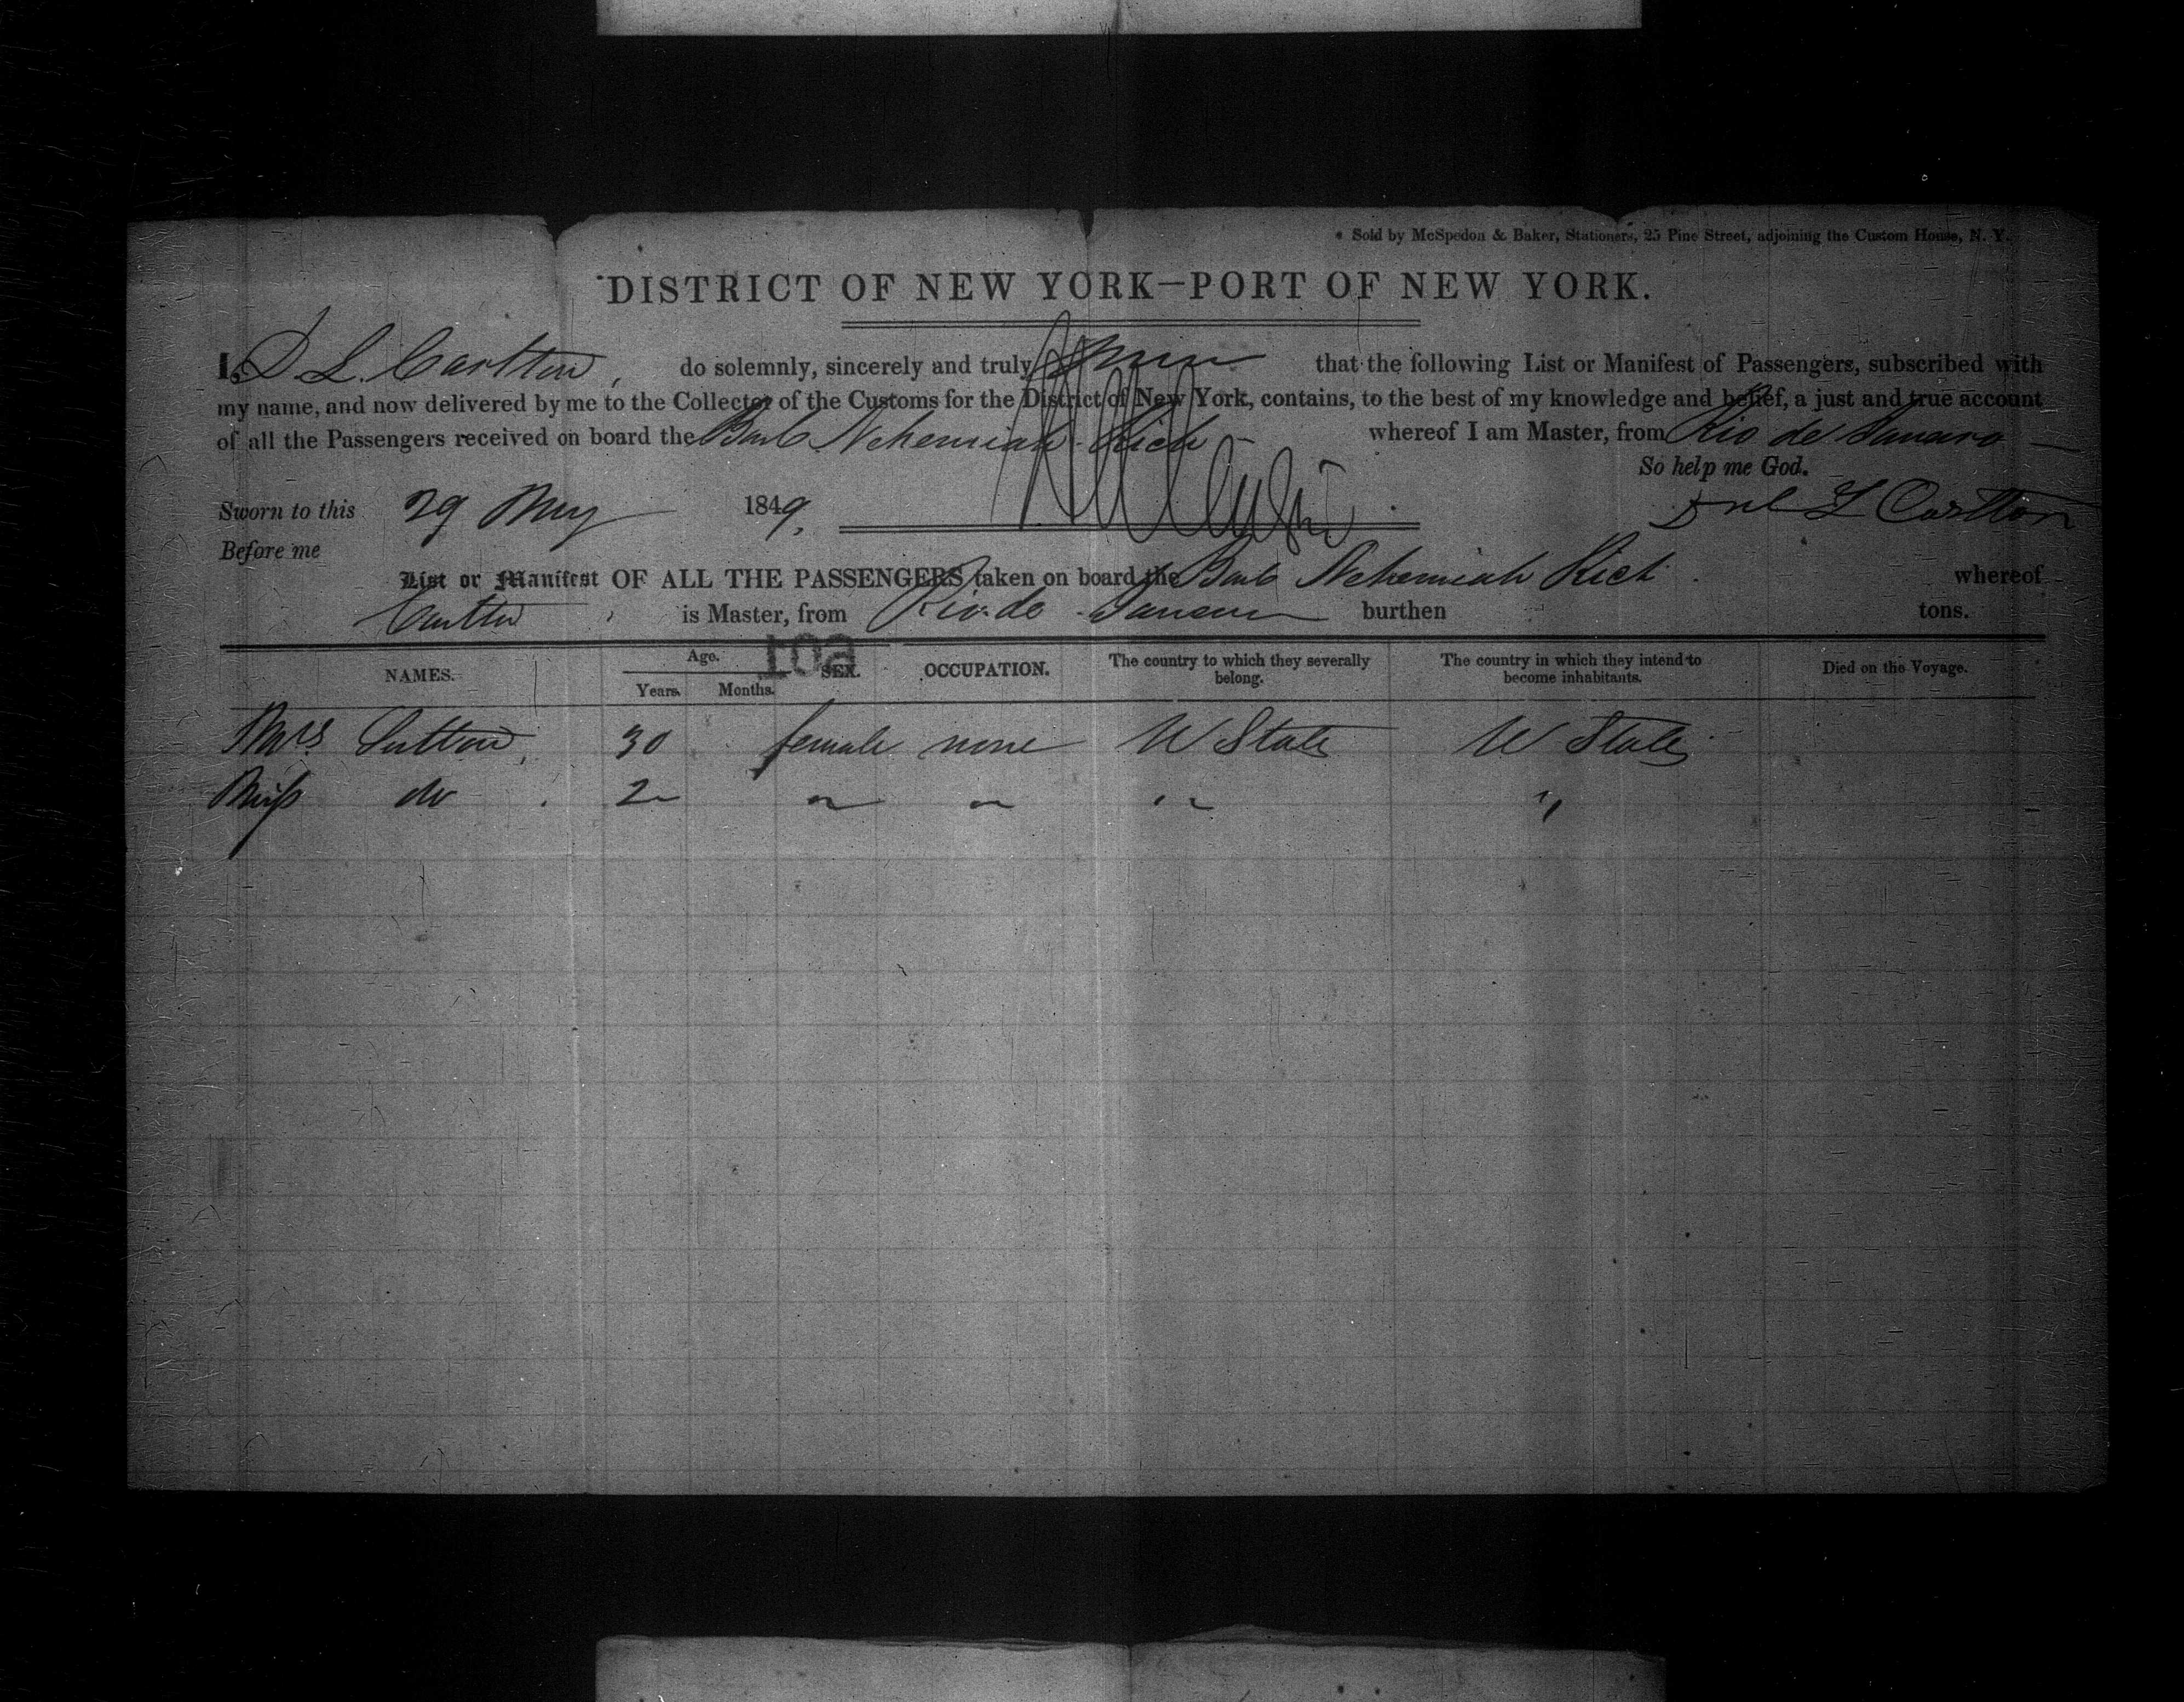 • Sold by McSpedon & Baker, Stationers, 25 Pine Street, adjoining the Custom House, N. Y.
DISTRICT OF NEW YORK—PORT OF NEW YORK.
I, D L. Carlton, do solemnly, sincerely and truly swear that the following List or Manifest of Passengers, subscribed with
my name, and now delivered by me to the Collector of the Customs for the District of New York, contains, to the best of my knowledge and belief, a just and true account
of all the Passengers received on board the Bark Nehemiah Rich whereof I am Master, from Rio de Janeiro
So help me God.
Sworn to this 29 May 1849. Dnl L Carlton
Before me
List or Manifest OF ALL THE PASSENGERS taken on board the Bark Nehemiah Rich whereof
Carlton is Master, from Rio de Janeiro burthen tons.
NAMES. Age. Years. Months. SEX. OCCUPATION. The country to which they severally belong. The country in which they intend to become inhabitants. Died on the Voyage.
Mrs Sutton, 30 female none U States U States
Miss do 2 " " " "